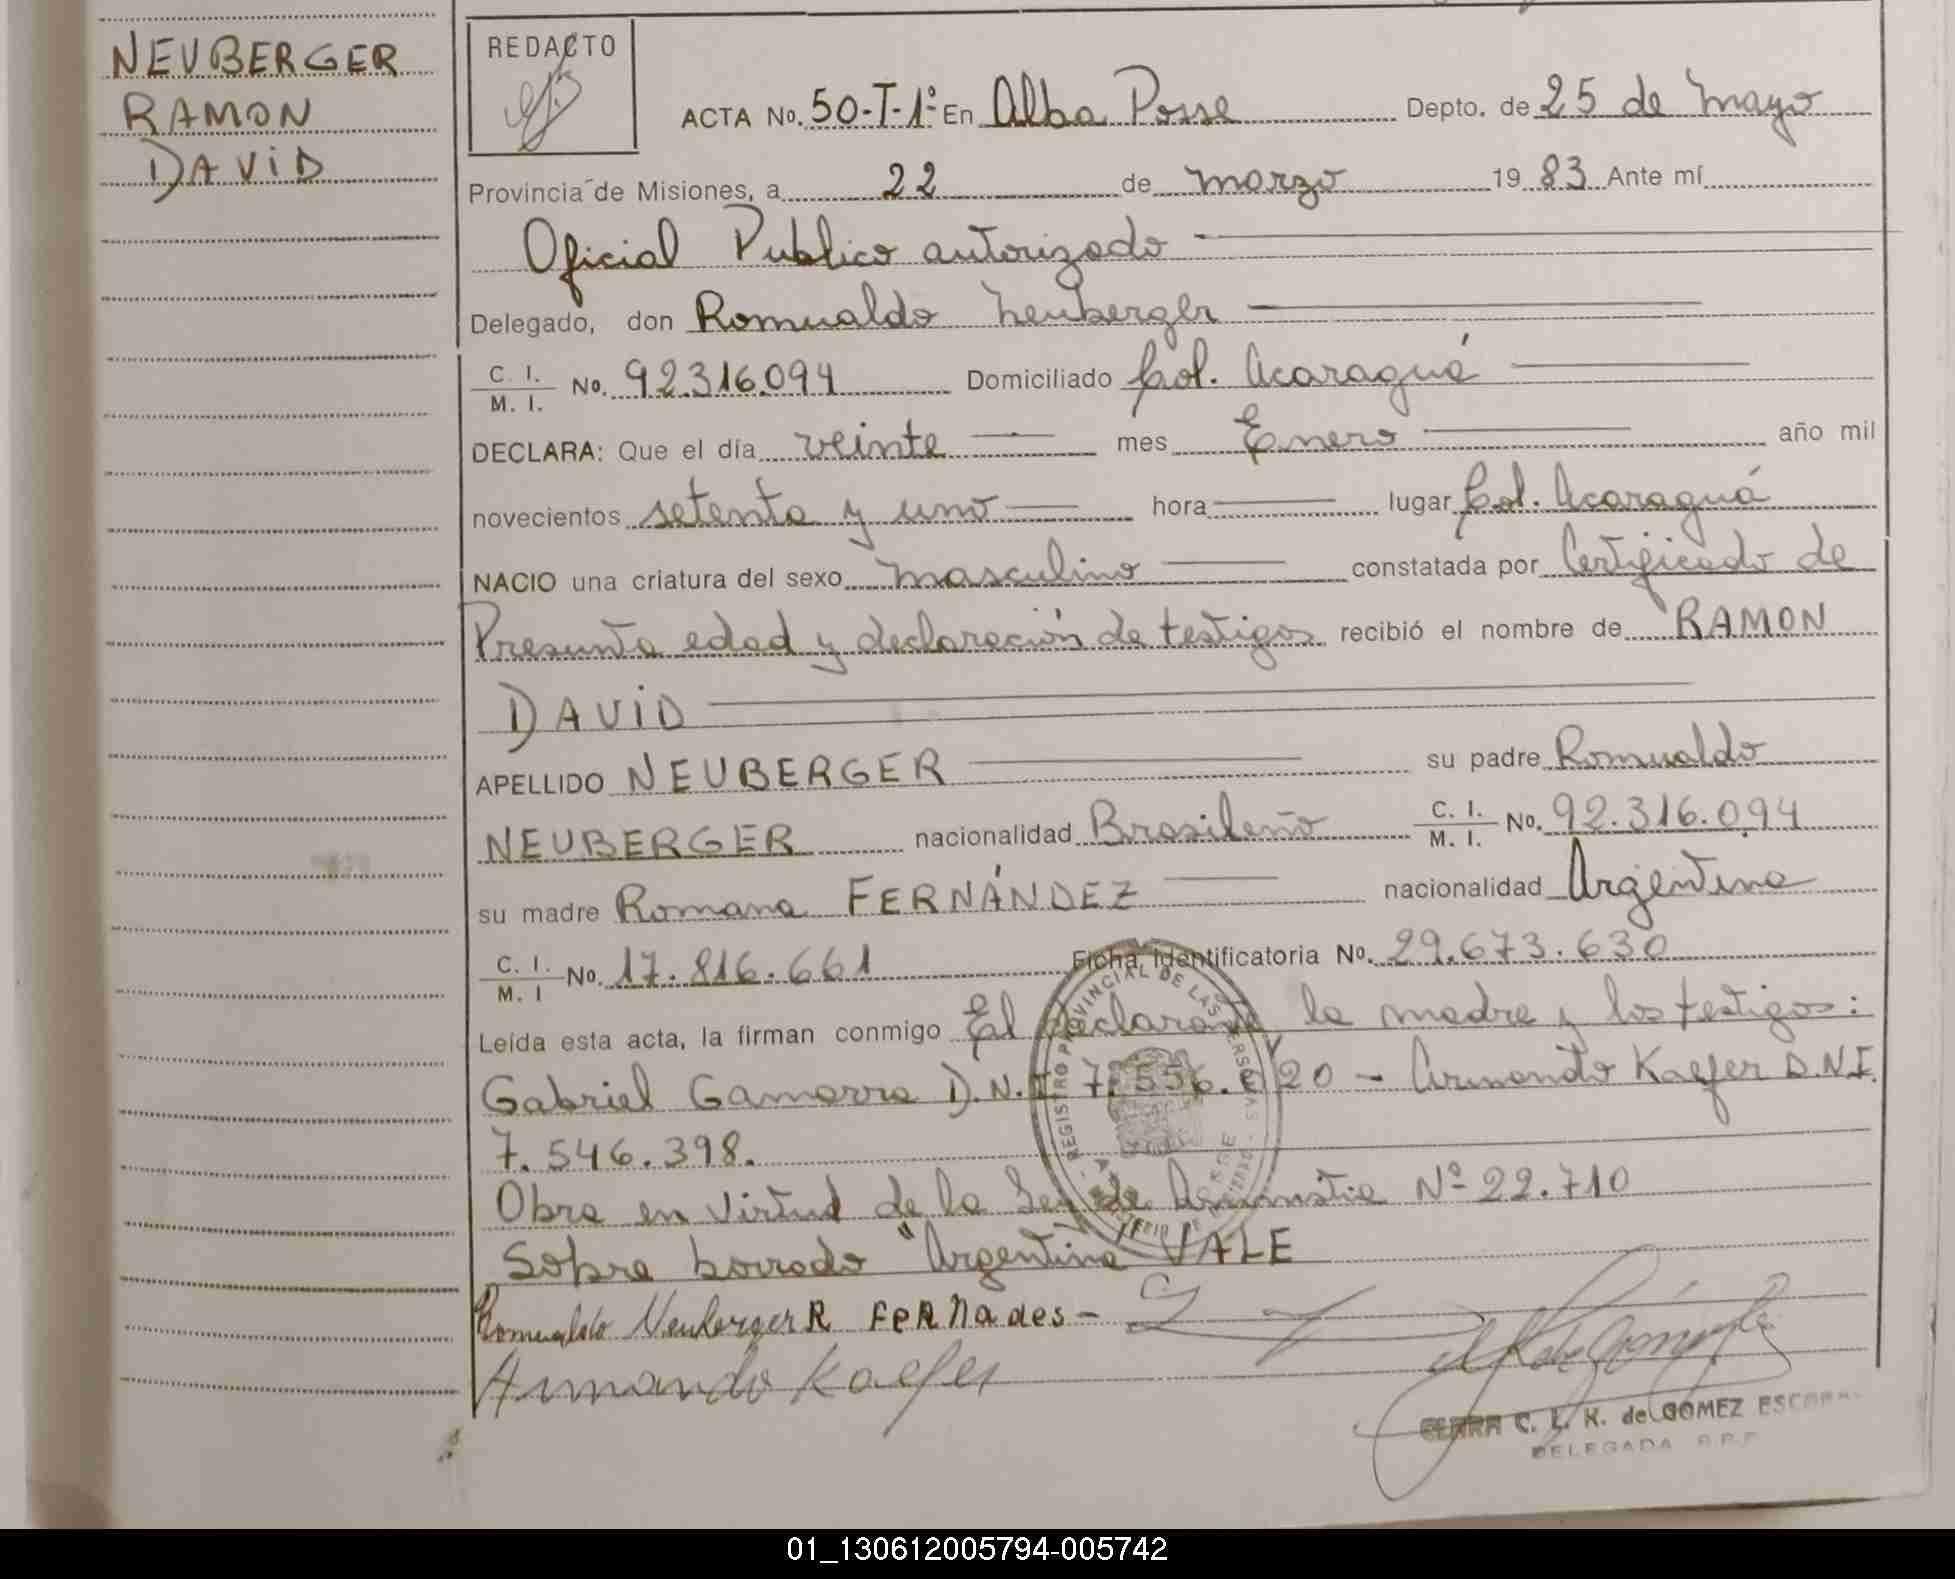 NEUBERGER
RAMON
DAVID
REDACTO
ACTA No. 50-T-1º En Alba Posse Depto. de 25 de Mayo
Provincia de Misiones, a 22 de Marzo 19 83 Ante mí
Oficial Publico autorizado
Delegado, don Romualdo Neuberger
C. I. / M. I. No. 92.316.094 Domiciliado Col. Acaraguá
DECLARA: Que el día veinte mes Enero año mil
novecientos setenta y uno hora lugar Col. Acaraguá
NACIO una criatura del sexo Masculino constatada por Certificado de
Presunta edad y declaración de testigos recibió el nombre de RAMON
DAVID
APELLIDO NEUBERGER su padre Romualdo
NEUBERGER nacionalidad Brasileño C. I. / M. I. No. 92.316.094
su madre Romana FERNÁNDEZ nacionalidad Argentina
C. I. / M. I No. 17.816.661 Ficha Identificatoria No. 29.673.630
Leída esta acta, la firman conmigo El declarante, la madre y los testigos:
Gabriel Gamarra D.N.I 7.556. 20 - Armando Kaefer D.N.I.
7.546.398.
Obra en virtud de la Ley de Amnistia Nº 22.710
Sobre borrado "Argentina VALE
Romualdo Neuberger R FeRNades-
Armando Kaefer
C. L. K. de GOMEZ
DELEGADA
REGISTRO PROVINCIAL DE LAS
01_130612005794-005742